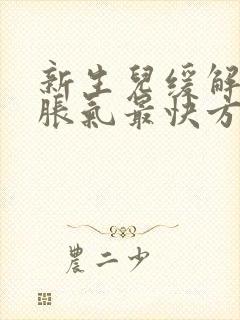 新生兒緩解
脹氣最快方
農二少